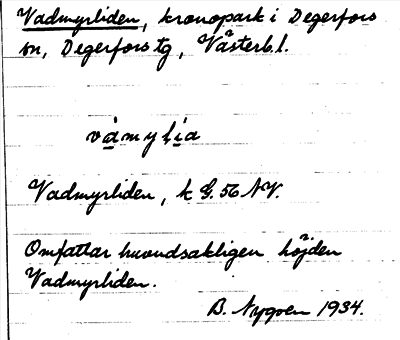 Vadmyrliden, kronopark i Degerfors
sn, Degerfors tg, Västerb.l.
Vadmyrliden, k G. 56 NV.
Omfattar huvudsakligen höjden
Vadmyrliden.
B. Nygren 1934.